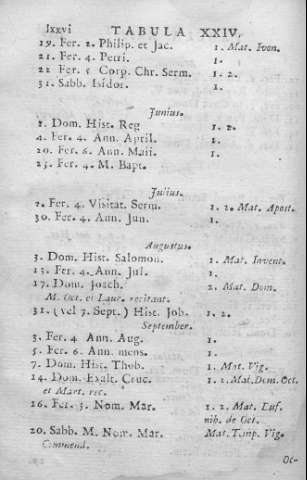 lxxvi TABULA XXIV.
19. Fer. 2. Philip. et Jac. 1. Mat. Ivon.
21. Fer. 4. Petri. 1.
22 Fer. 5 Corp. Chr. Serm. 1. 2.
31. Sabb. Isidor. 1.
Junius.
1. Dom. Hist. Reg 1. 2.
4. Fer. 4. Ann. April. 1.
20. Fer. 6. Ann. Maii. 1.
25. Fer. 4. M. Bapt.
Julius.
2. Fer. 4. Visitat. Serm. 1. 2. Mat. Apost.
30. Fer. 4. Ann. Jun. 1.
Augustus.
3. Dom. Hist. Salomon. 1. Mat. Invent.
13. Fer. 4. Ann. Jul. 1.
17. Dom. Joach. 2. Mat. Dom.
M. Oct. et Laur. recitant.
31. (vel 7. Sept.) Hist. Job. 1. 2.
September.
3. Fer. 4 Ann. Aug. 1.
5. Fer. 6. Ann. mens. 1.
7. Dom. Hist. Thob. 1. Mat. Vig.
14. Dom. Exalt. Cruc. 1. 2. Mat. Dom. Oct.
et Mart. rec.
16. Fer. 3. Nom. Mar. 1. 2. Mat. Euf.
nih. de Oct.
20. Sabb. M. Nom. Mar. Mat. Temp. Vig.
Commend.
Oc-